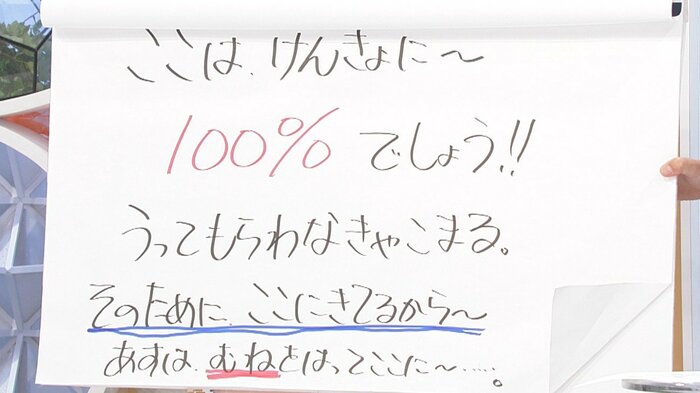 ここは、けんきょに〜
100% でしょう!!
うってもらわなきゃこまる。
そのために、ここにきてるから〜
あすは、むねをはってここに〜.....。